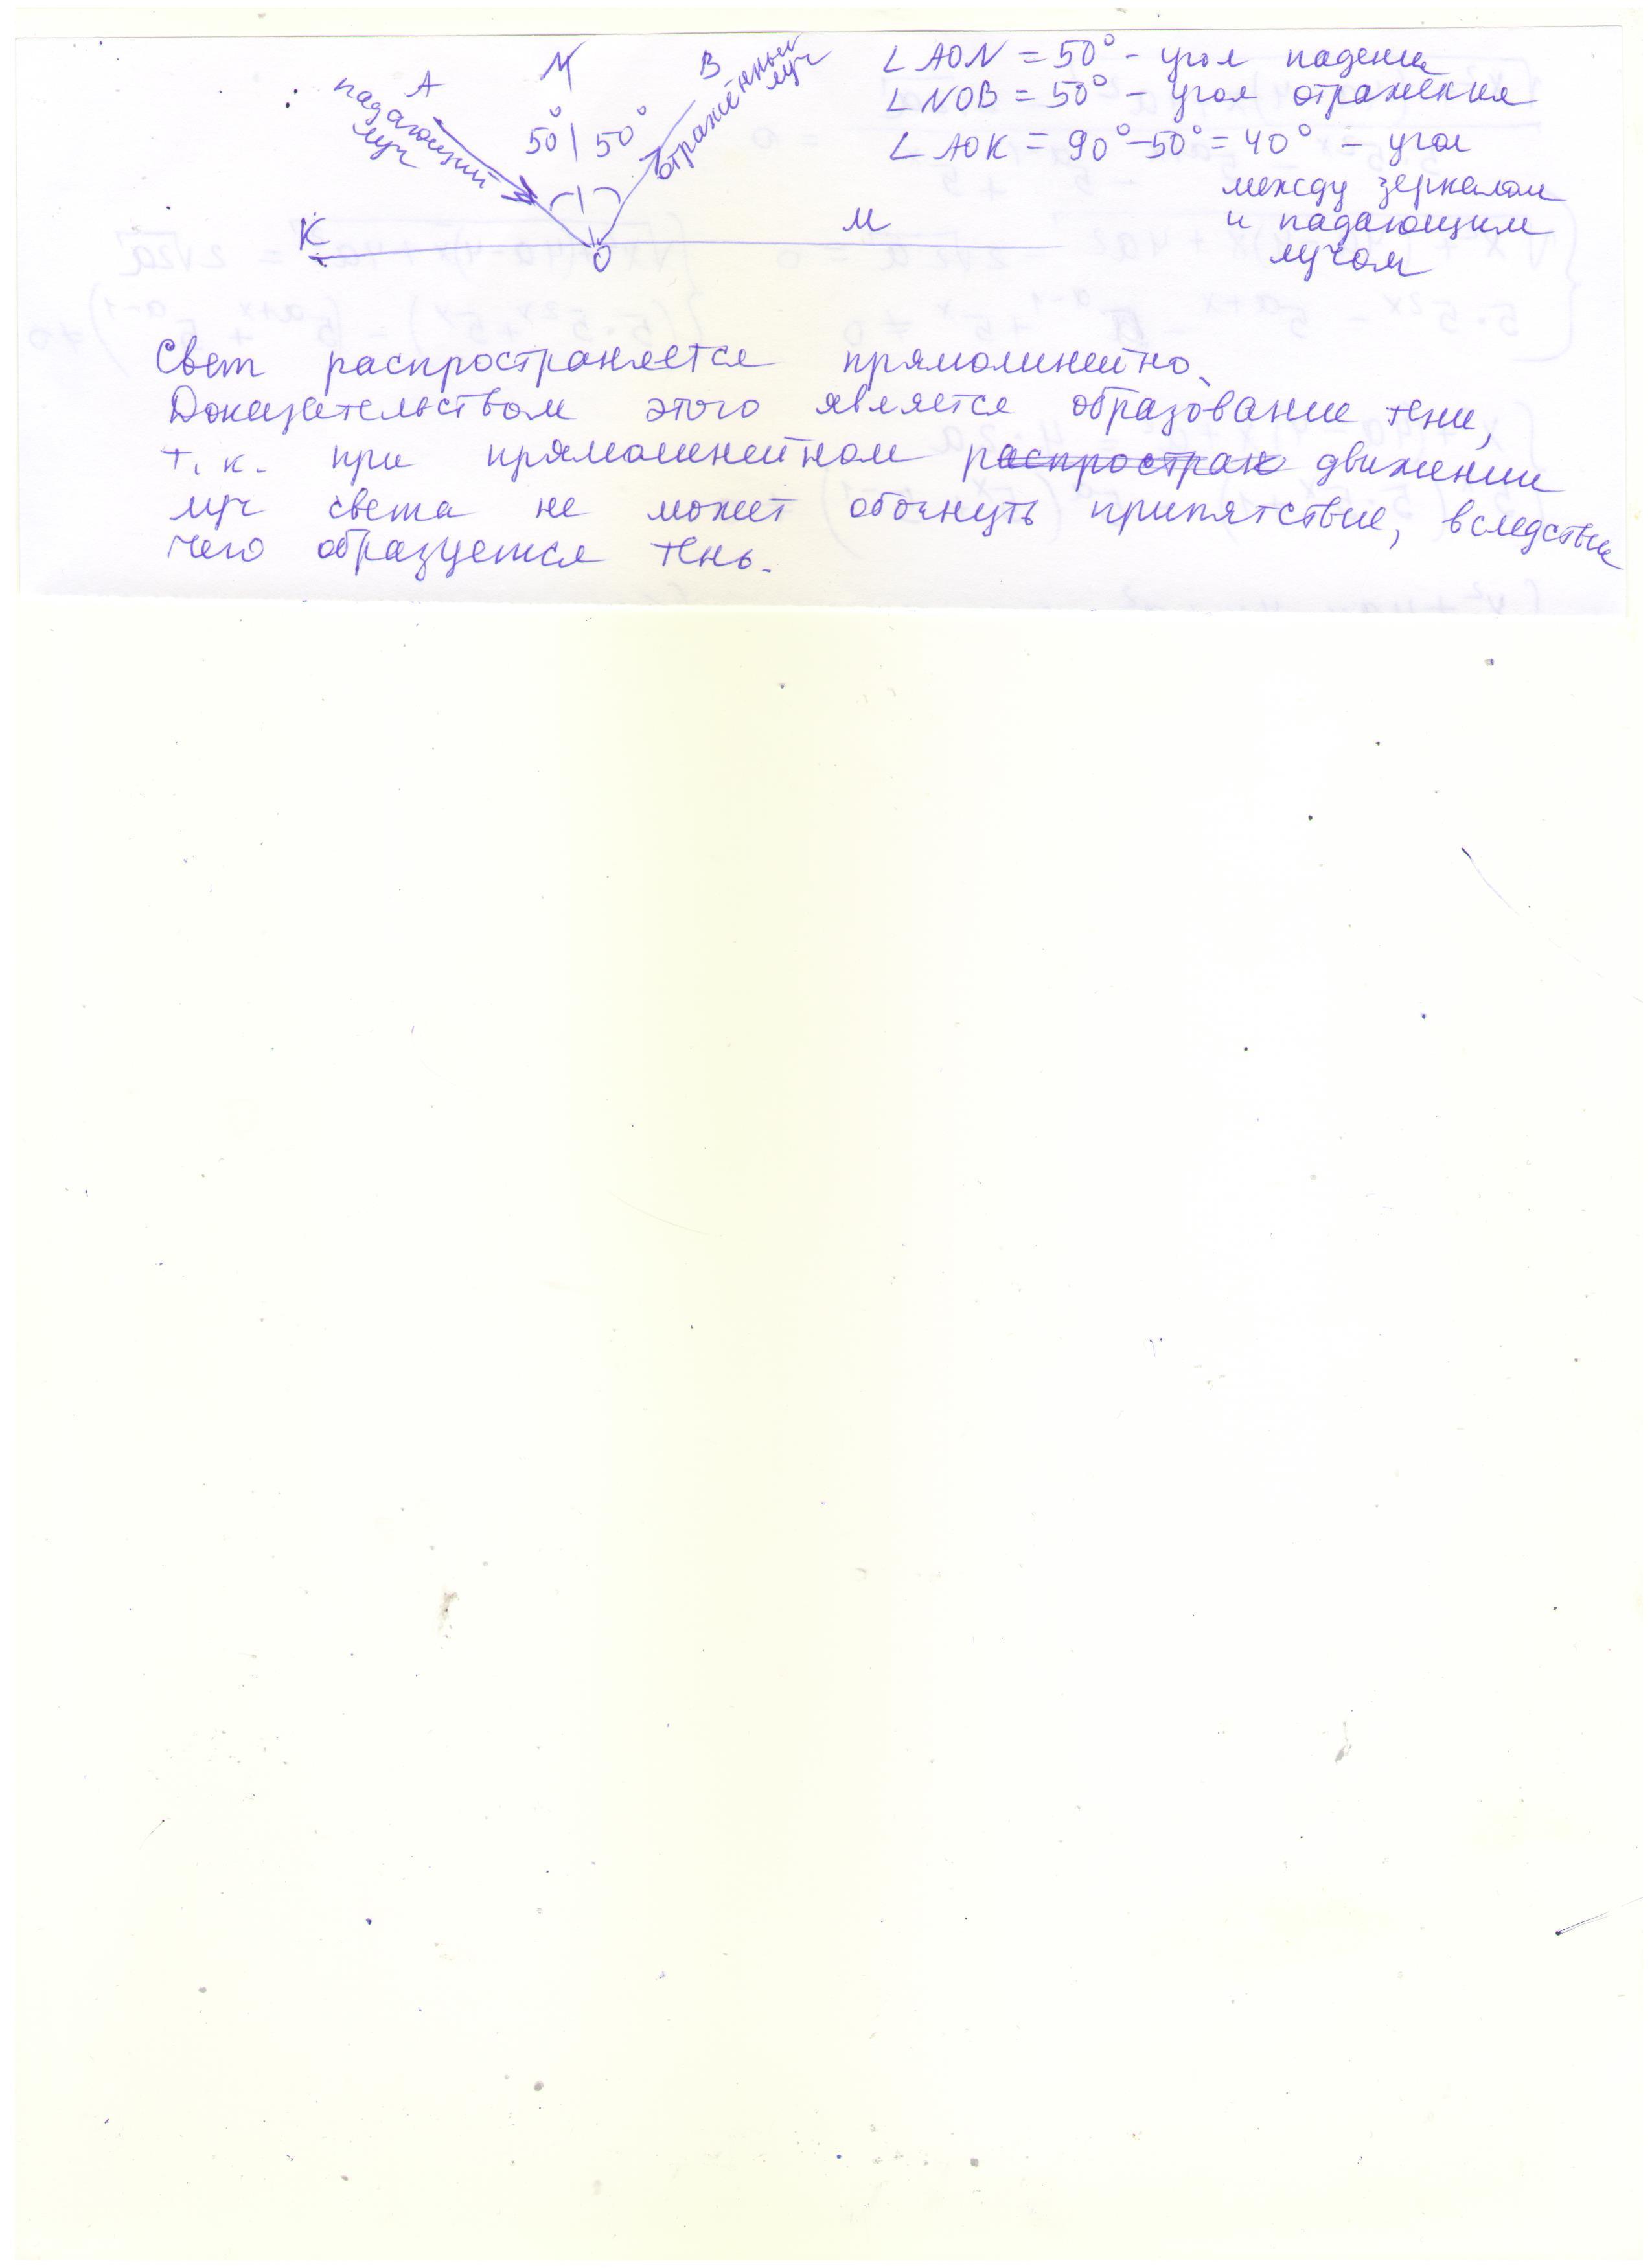 A N B
падающий луч
отражённый луч
50° | 50°
K O M
∠AON = 50° - угол падения
∠NOB = 50° - угол отражения
∠AOK = 90°-50° = 40° - угол
между зеркалом
и падающим
лучом
Свет распространяется прямолинейно.
Доказательством этого является образование тени,
т.к. при прямолинейном распростран движении
луч света не может обогнуть припятствие, вследствие
чего образуется тень.